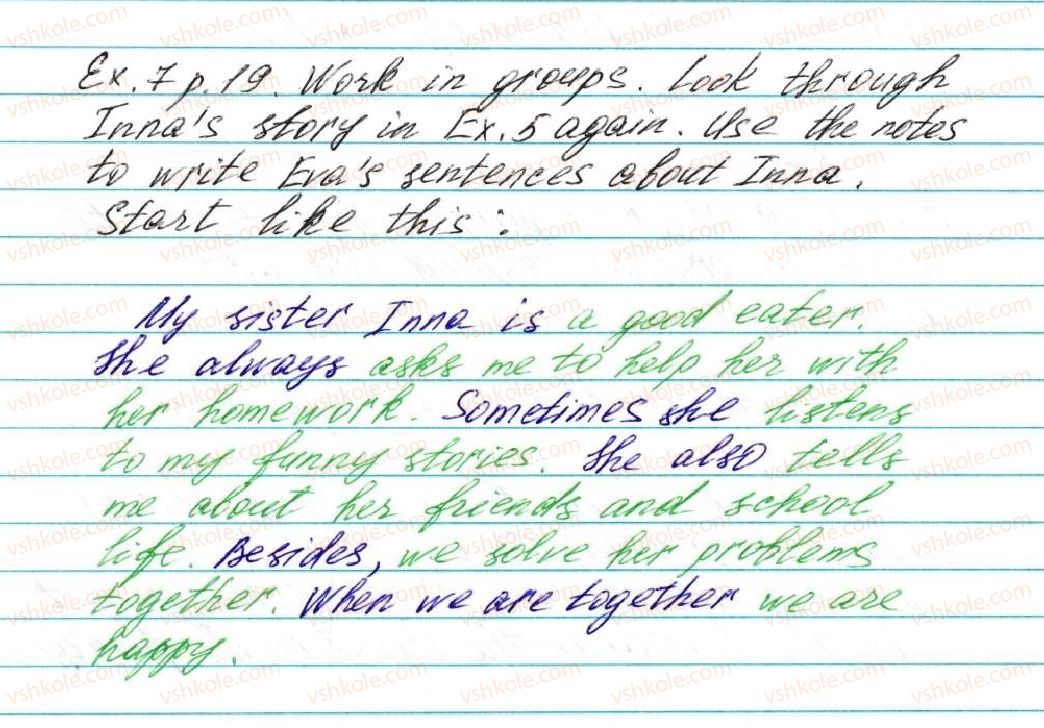 Ex. 7 p. 19. Work in groups. Look through
Inna's story in Ex. 5 again. Use the notes
to write Eva's sentences about Inna.
Start like this:
My sister Inna is a good eater.
She always asks me to help her with
her homework. Sometimes she listens
to my funny stories. She also tells
me about her friends and school
life. Besides, we solve her problems
together. When we are together we are
happy.